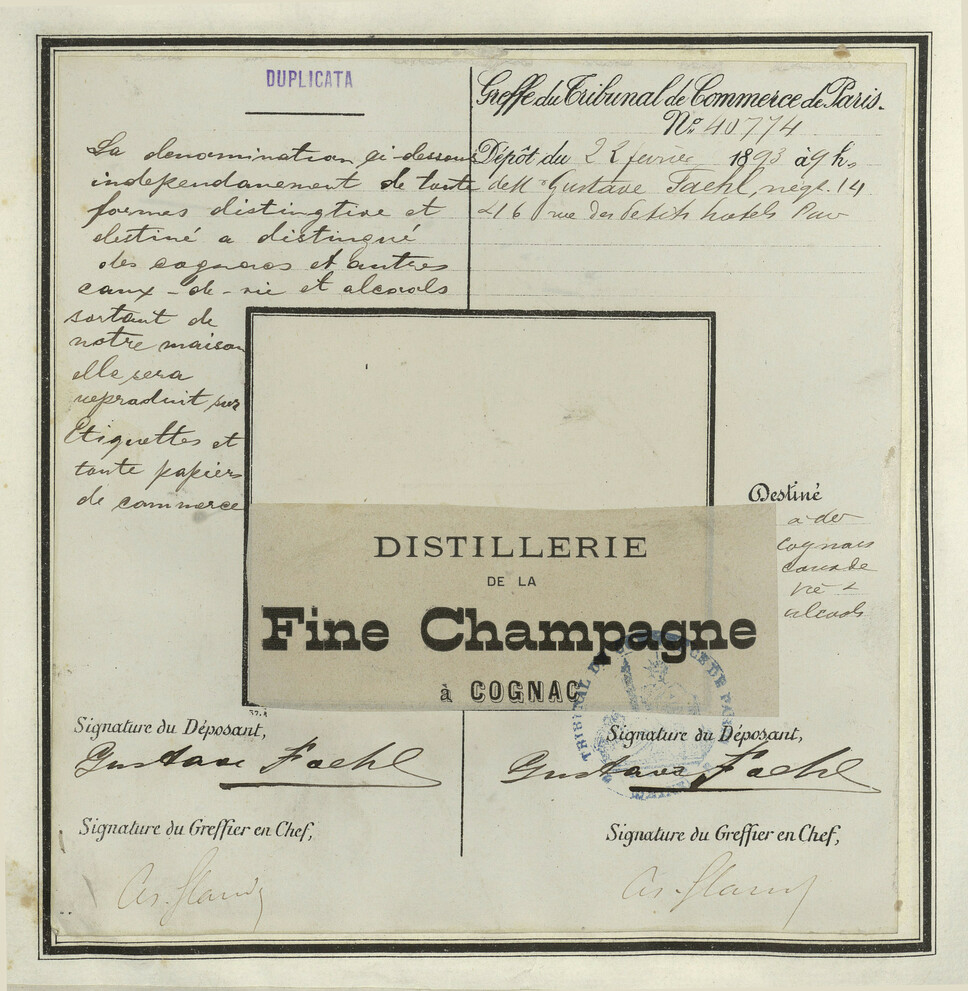 DUPLICATA
La denomination ci-dessous
independanement de toute
formes distingtive et
destiné a distingué
des cognacs et autres
eaux-de-vie et alcools
sortant de
notre maison
elle sera
reproduit sur
Etiquettes et
toute papiers
de commerce
Greffe du Tribunal de Commerce de Paris.
No. 40774
Dépôt du 22 fevrier 1893 à 9 h.
de Mr Gustave Faehl, négt. 14
16 rue des Petits hotels Paris
DISTILLERIE
DE LA
Fine Champagne
à COGNAC
Destiné
a des
Cognacs
eaux de
vie &
alcools
TRIBUNAL DE PARIS
Signature du Déposant,
Gustave Faehl
Signature du Greffier en Chef,
Signature du Déposant,
Gustave Faehl
Signature du Greffier en Chef,